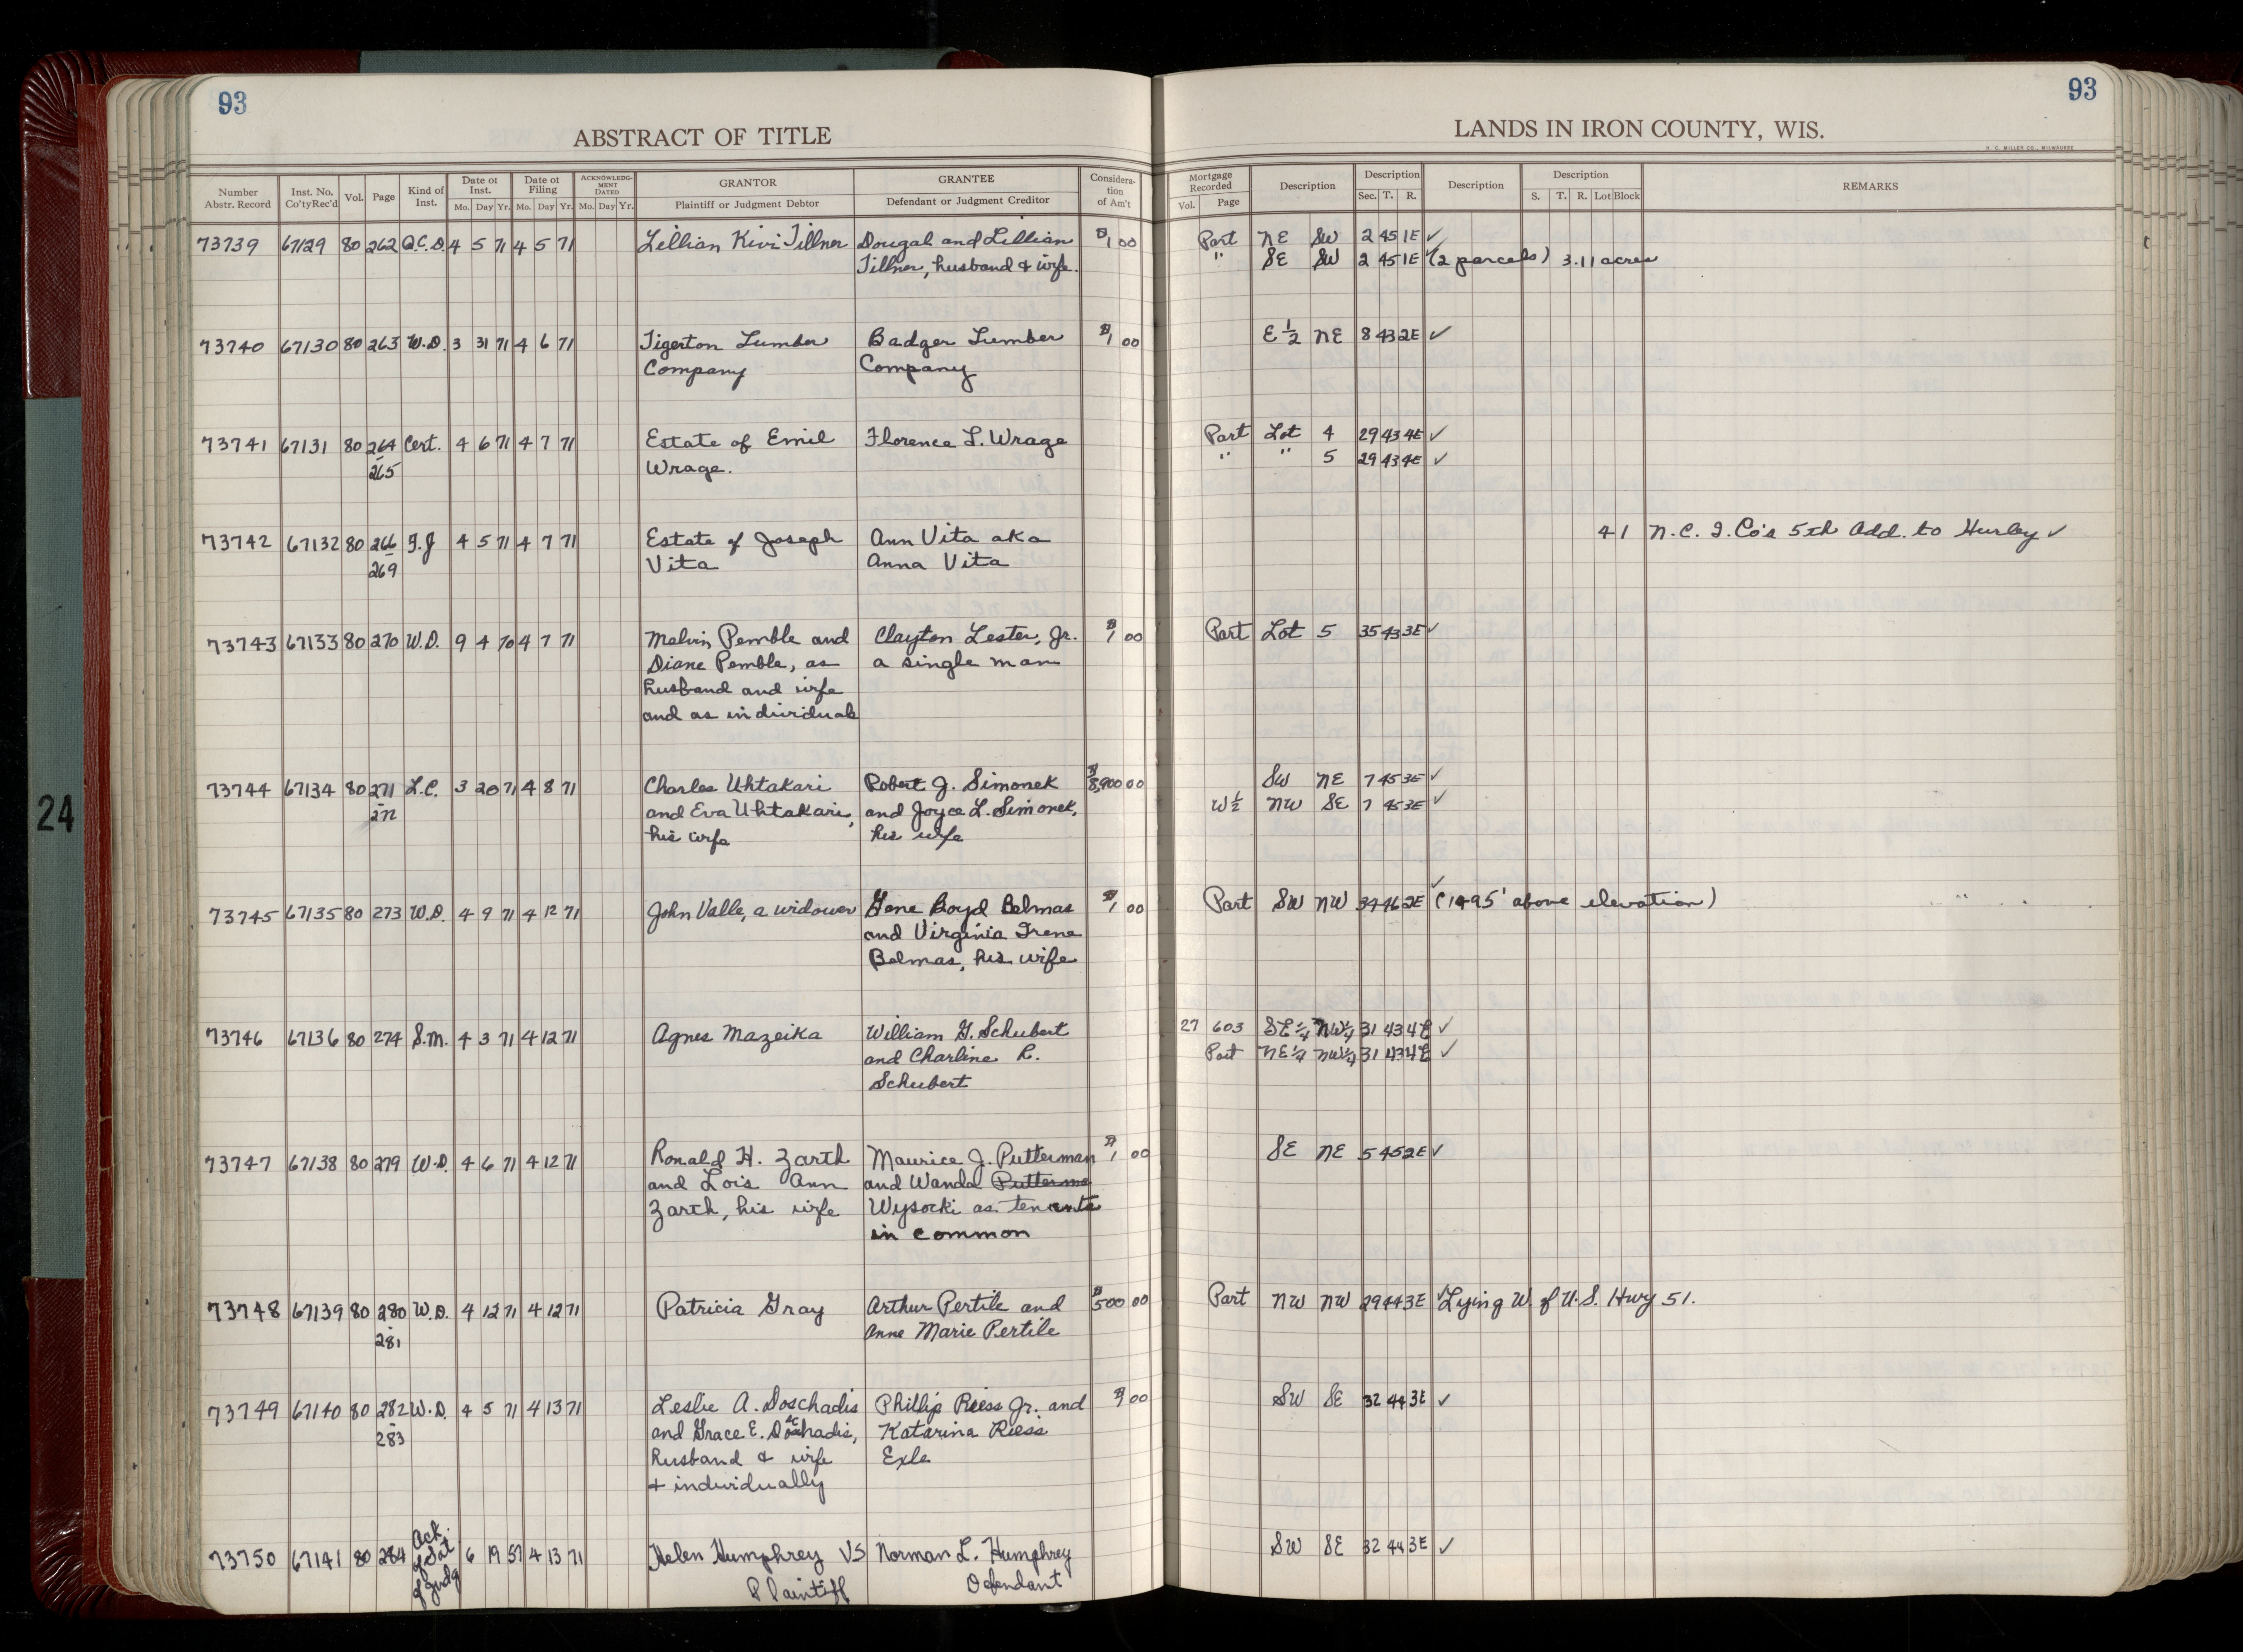 93
93
ABSTRACT OF TITLE
LANDS IN IRON COUNTY, WIS.
H. C. MILLER CO., MILWAUKEE
Number Abstr. Record Inst. No. Co'ty Rec'd Vol. Page Kind of Inst. Date of Inst. Mo. Day Yr. Date of Filing Mo. Day Yr. ACKNOWLEDGMENT DATED Mo. Day Yr. GRANTOR Plaintiff or Judgment Debtor GRANTEE Defendant or Judgment Creditor Consideration of Am't Mortgage Recorded Vol. Page Description Description Sec. T. R. Description Description S. T. R. Lot Block REMARKS
73739 67129 80 262 Q.C.D. 4 5 71 4 5 71 Lillian Kivi Tillner Dougal and Lillian $1 00 Part NE SW 2 45 1E ✓
Tillner, husband & wife. " SE SW 2 45 1E ✓ (2 parcels) 3.11 acres
73740 67130 80 263 W.D. 3 31 71 4 6 71 Tigerton Lumber Badger Lumber $1 00 E ½ NE 8 43 2E ✓
Company Company
73741 67131 80 264 Cert. 4 6 71 4 7 71 Estate of Emil Florence L. Wrage Part Lot 4 29 43 4E ✓
265 Wrage. " " 5 29 43 4E ✓
73742 67132 80 266 F.J 4 5 71 4 7 71 Estate of Joseph Ann Vita aka 4 1 N.C. I. Co's 5th Add. to Hurley ✓
269 Vita Anna Vita
73743 67133 80 270 W.D. 9 4 70 4 7 71 Melvin Pemble and Clayton Lester, Jr. $1 00 Part Lot 5 35 43 3E ✓
Diane Pemble, as a single man
husband and wife
and as individuals
73744 67134 80 271 L.C. 3 20 71 4 8 71 Charles Uhtakari Robert J. Simonek $8,900 00 SW NE 7 45 3E ✓
272 and Eva Uhtakari, and Joyce L. Simonek, W½ NW SE 7 45 3E ✓
his wife his wife
73745 67135 80 273 W.D. 4 9 71 4 12 71 John Valle, a widower Gene Boyd Belmas $1 00 Part SW NW 34 46 2E ✓ (1495' above elevation)
and Virginia Irene
Belmas, his wife
73746 67136 80 274 S.M. 4 3 71 4 12 71 Agnes Mazeika William G. Schubert 27 603 SE¼ NW¼ 31 43 4E ✓
and Charline R. Part NE¼ NW¼ 31 43 4E ✓
Schubert
73747 67138 80 279 W.D. 4 6 71 4 12 71 Ronald H. Zarth Maurice J. Putterman $1 00 SE NE 5 45 2E ✓
and Lois Ann and Wanda Putterma
Zarth, his wife Wysocki as tenants
in common
73748 67139 80 280 W.D. 4 12 71 4 12 71 Patricia Gray Arthur Pertile and $500 00 Part NW NW 29 44 3E ✓ Lying W. of U.S. Hwy 51.
281 Anne Marie Pertile
73749 67140 80 282 W.D. 4 5 71 4 13 71 Leslie A. Doschadis Phillip Riess Jr. and $1 00 SW SE 32 44 3E ✓
283 and Grace E. Doschadis, Katarina Riess
husband & wife Exle
& individually
73750 67141 80 284 Ack. of Sat. of Judg 6 19 57 4 13 71 Helen Humphrey VS Norman L. Humphrey SW SE 32 44 3E ✓
Plaintiff Defendant
24